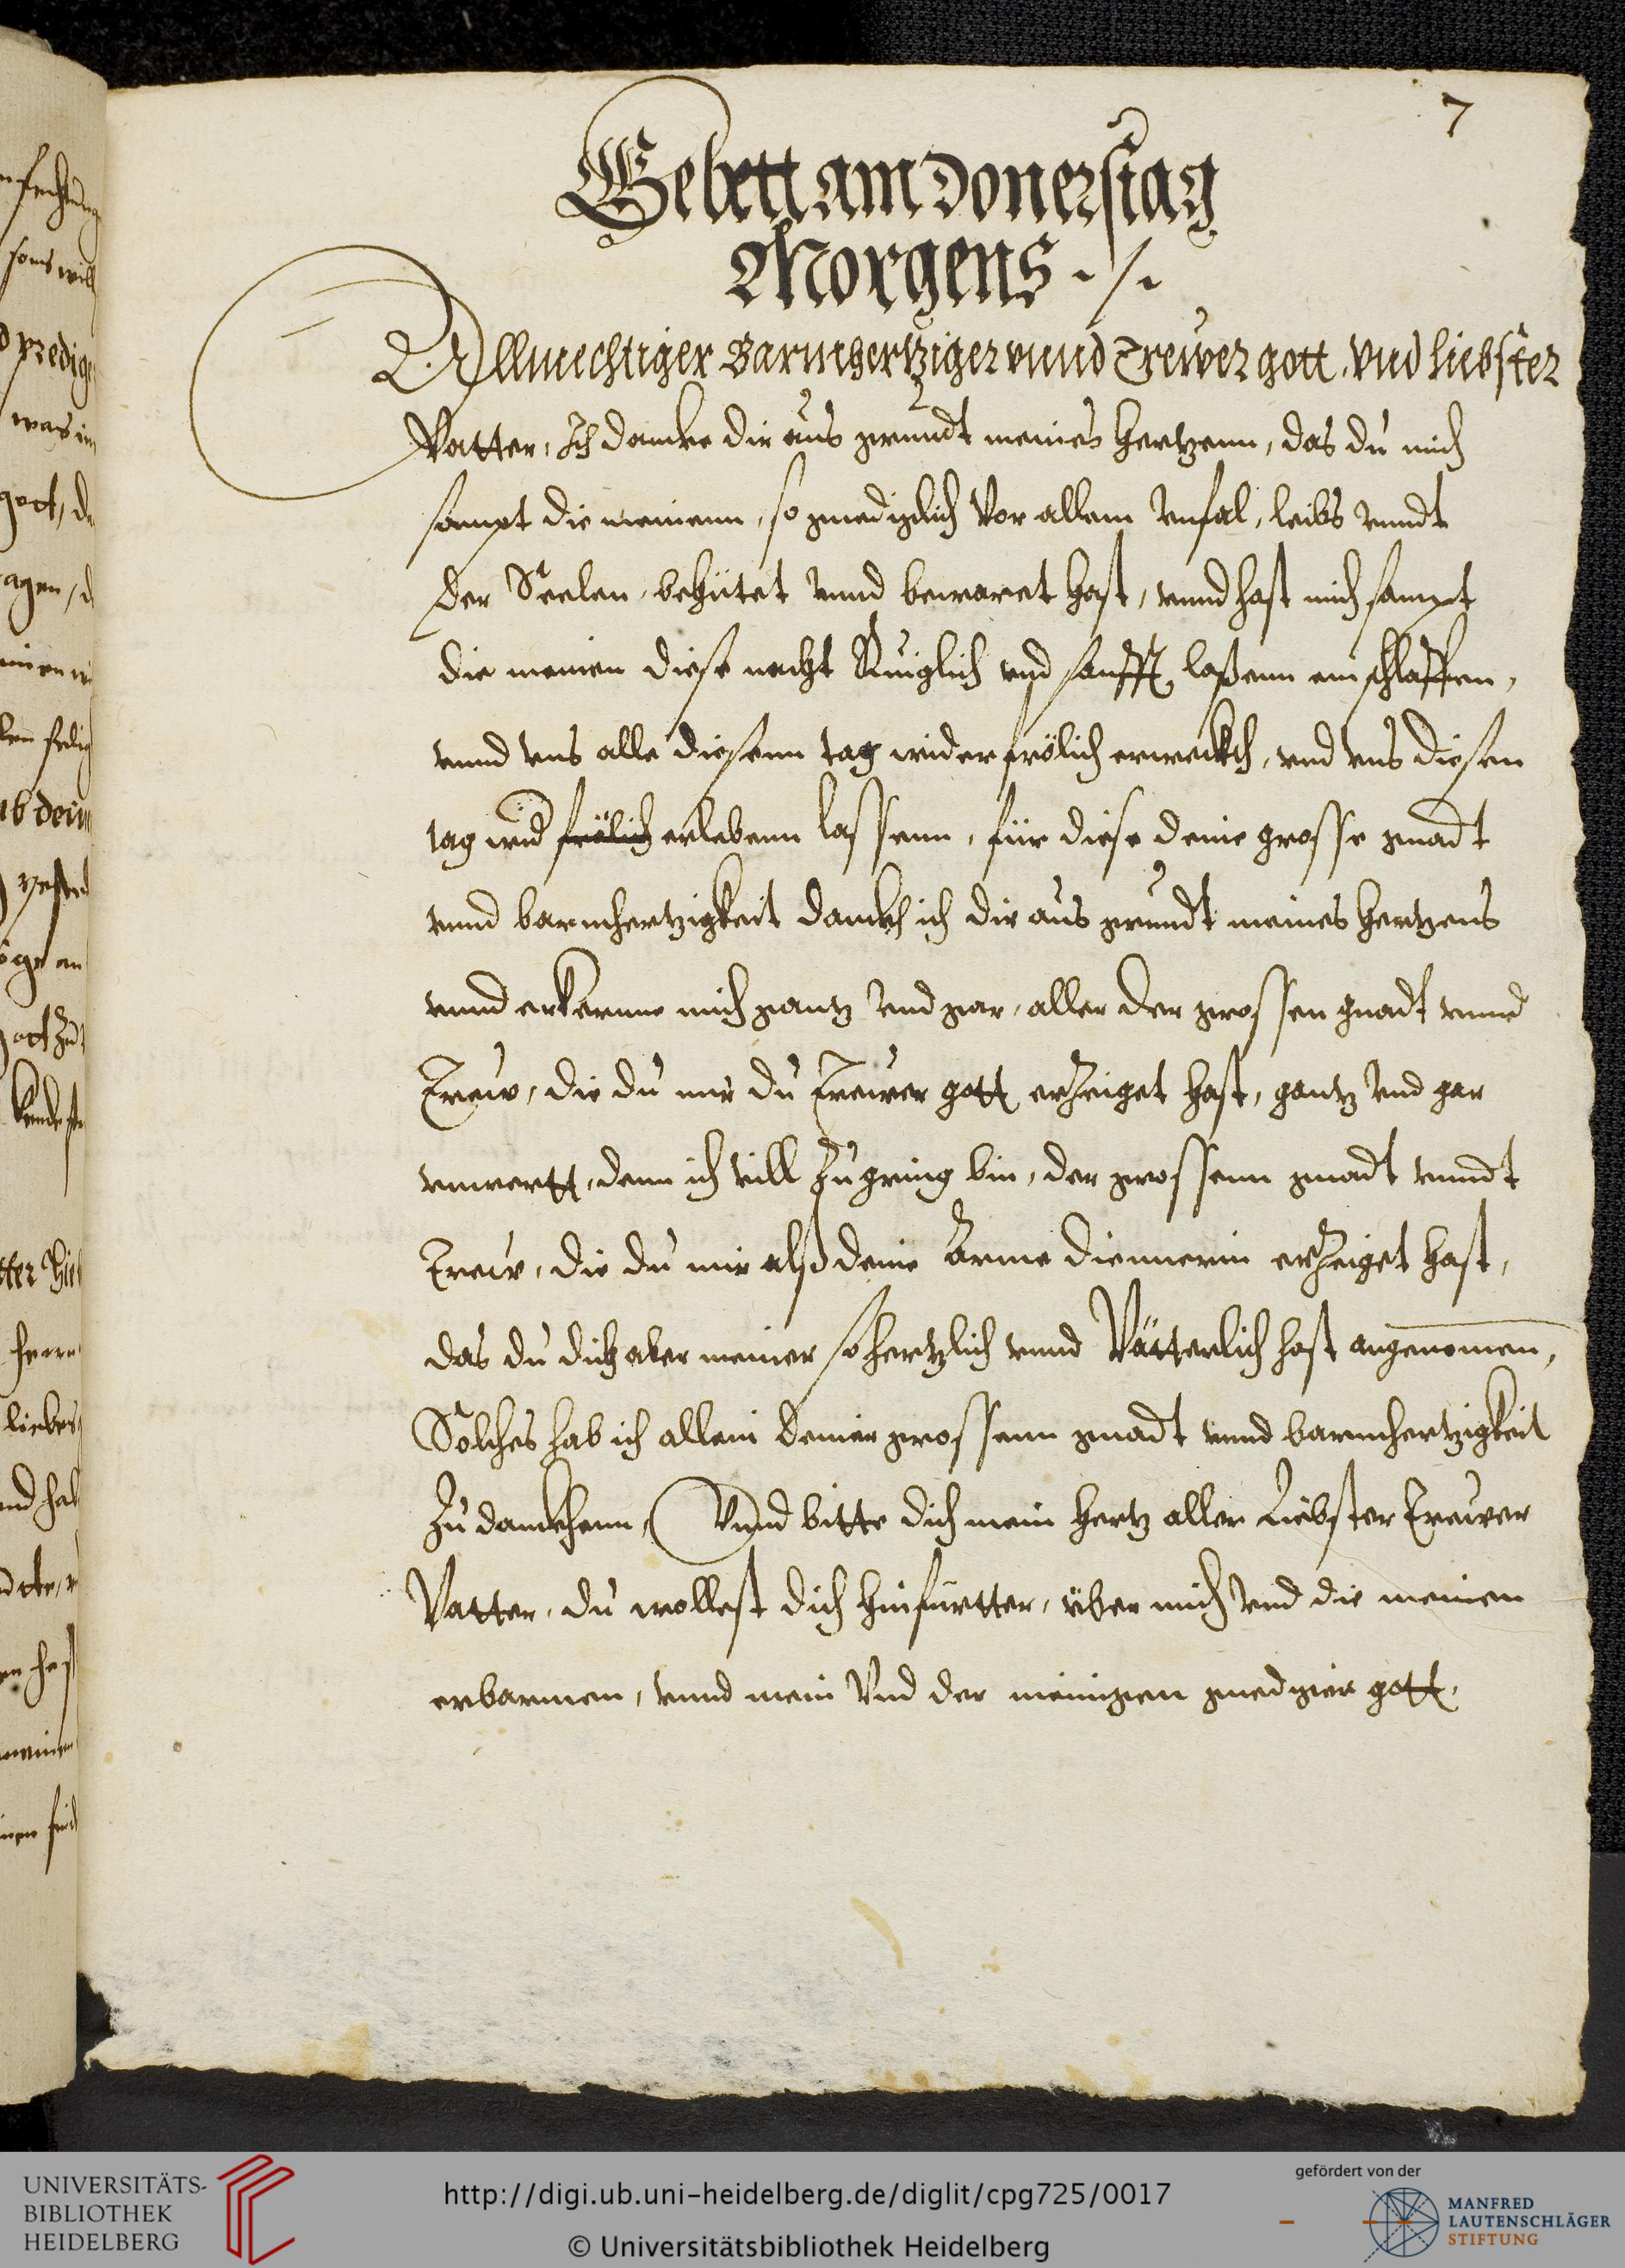 7
Gebett am Donerstag
Morgens ./.
Allmechtiger Barmhertziger vnnd Trewer gott. vnd liebster
Vatter, Ich dancke dir aus grundt meines hertzenn, das du mich
sampt die meinenn, so gnediglich Vor allem Vnfal, leibs vnndt
der Seelen, behütet vnnd bewaret hast, vnnd hast mich sampt
die meinen diese nacht Ruiglich vnd sanfft laßenn einschlaffen,
vnnd vns alle diesenn tag wider frölich erweckh, vnd vns diesen
tag vnd frölich erlebenn lassenn, für diese deine grosse gnadt
vnnd barmhertzigkeit danckh ich dir aus grundt meines hertzens
vnnd erkenne mich gantz Vnd gar, aller der grossen gnadt vnnd
Trew, die du mir du Trewer gott erzeiget hast, gantz Vnd gar
vnwertt, denn ich vill zu gring bin, der grossenn gnadt vnndt
Trew, die du mir alß deine Arme diennerin erzeiget hast,
das du dich aber meiner so hertzlich vnnd Vätterlich hast angenomen,
Solches hab ich allein deiner grossenn gnadt vnnd barmhertzigkeit
zu danckhenn, Vnnd bitte dich mein hertz aller Liebster Trewer
Vatter, du wollest dich hinfurtter, über mich Vnd die meinen
erbarmen, vnnd mein Vnd der meinigen gnediger gott,
UNIVERSITÄTS-
BIBLIOTHEK
HEIDELBERG
http://digi.ub.uni-heidelberg.de/diglit/cpg725/0017
© Universitätsbibliothek Heidelberg
gefördert von der
MANFRED
LAUTENSCHLÄGER
STIFTUNG